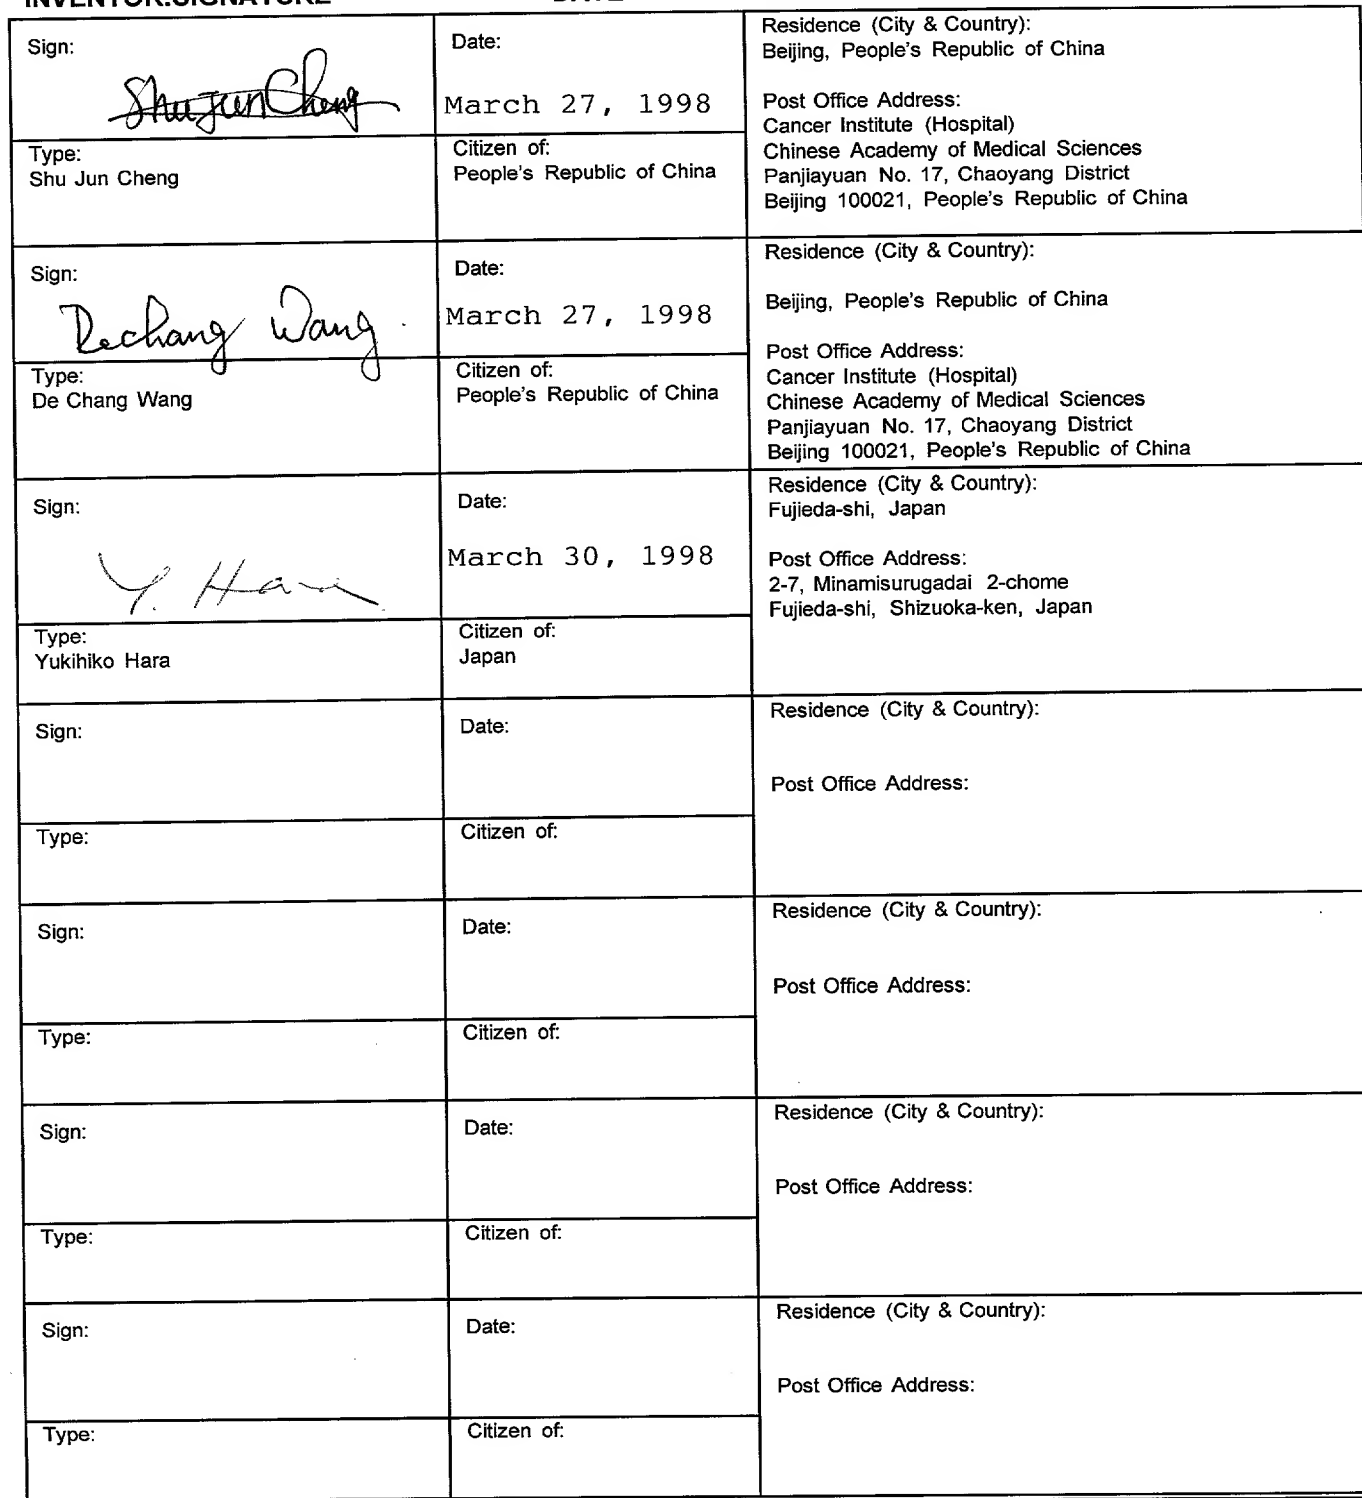 INVENTOR:SIGNATURE DATE
Sign:
Shu Jun Cheng
Date:
March 27, 1998
Residence (City & Country):
Beijing, People's Republic of China
Post Office Address:
Cancer Institute (Hospital)
Chinese Academy of Medical Sciences
Panjiayuan No. 17, Chaoyang District
Beijing 100021, People's Republic of China
Type:
Shu Jun Cheng
Citizen of:
People's Republic of China
Sign:
Dechang Wang
Date:
March 27, 1998
Residence (City & Country):
Beijing, People's Republic of China
Post Office Address:
Cancer Institute (Hospital)
Chinese Academy of Medical Sciences
Panjiayuan No. 17, Chaoyang District
Beijing 100021, People's Republic of China
Type:
De Chang Wang
Citizen of:
People's Republic of China
Sign:
Y. Hara
Date:
March 30, 1998
Residence (City & Country):
Fujieda-shi, Japan
Post Office Address:
2-7, Minamisurugadai 2-chome
Fujieda-shi, Shizuoka-ken, Japan
Type:
Yukihiko Hara
Citizen of:
Japan
Sign:
Date:
Residence (City & Country):
Post Office Address:
Type:
Citizen of:
Sign:
Date:
Residence (City & Country):
Post Office Address:
Type:
Citizen of:
Sign:
Date:
Residence (City & Country):
Post Office Address:
Type:
Citizen of:
Sign:
Date:
Residence (City & Country):
Post Office Address:
Type:
Citizen of: